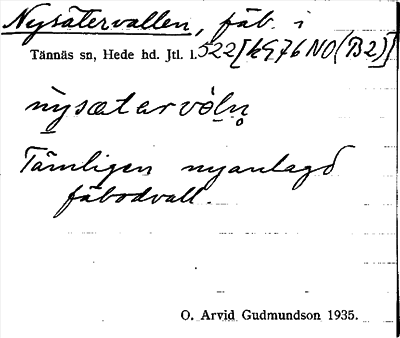 Nysätervallen, fäb. i
Tännäs sn, Hede hd. Jtl. l. 522[kG76NO(B2)]
nysætarvöln̥
Tämligen nyanlagd
fäbodvall.
O. Arvid Gudmundson 1935.